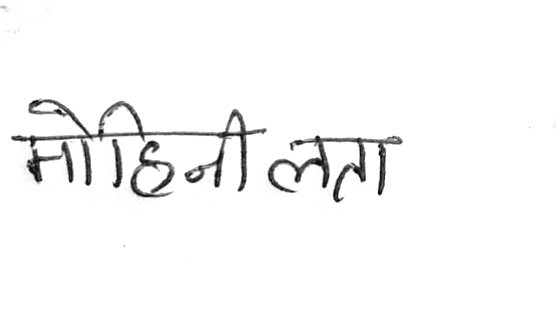 मोहिनी लता